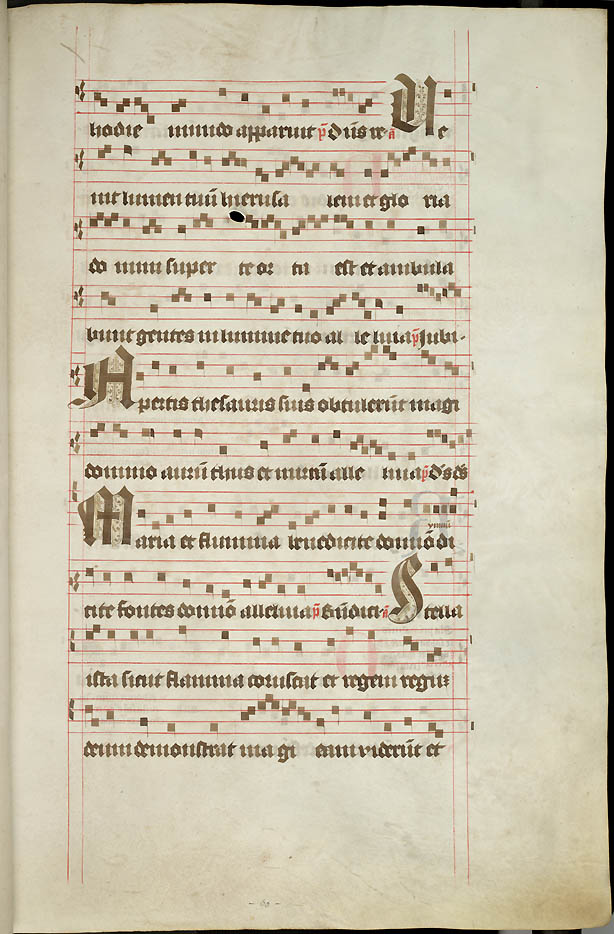 hodie mundo apparuit p̄ dn̄s re ā Ve
nit lumen tuū hierusa lem et glo ria
do mini super te or ta est et ambula
bunt gentes in lumine tuo al le luia p̄ Jubi-
Apertis thesauris suis obtulerūt magi
domino aurū thus et mirrā alle luia p̄ ds̄ ds̄
ymnū
Maria et flumina benedicite domiō di
cite fontes domiō alleluia p̄ Bn̄dici ā Stella
ista sicut flamma coruscat et regem regum
deum demonstrat magi eam viderūt et
- 60 -